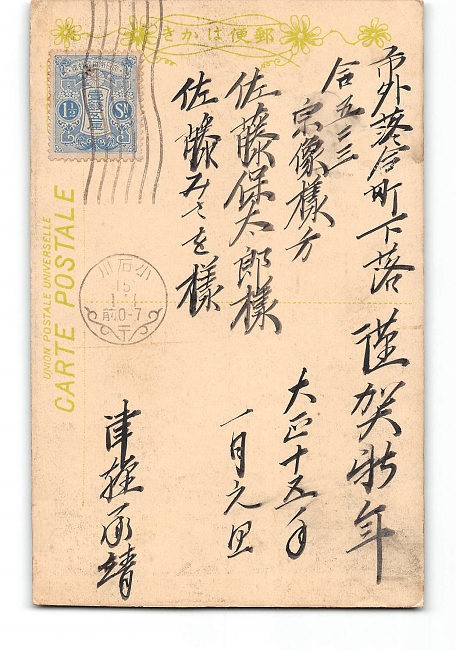 きかは便郵
UNION POSTALE UNIVERSELLE
CARTE POSTALE
1½ Sn
小石川
15
1.1
前0-7
市外落合町下落
合五二三
宗像様方
佐藤保太郎様
佐藤みさを様
謹賀新年
大正十五年
一月元旦
津軽承靖